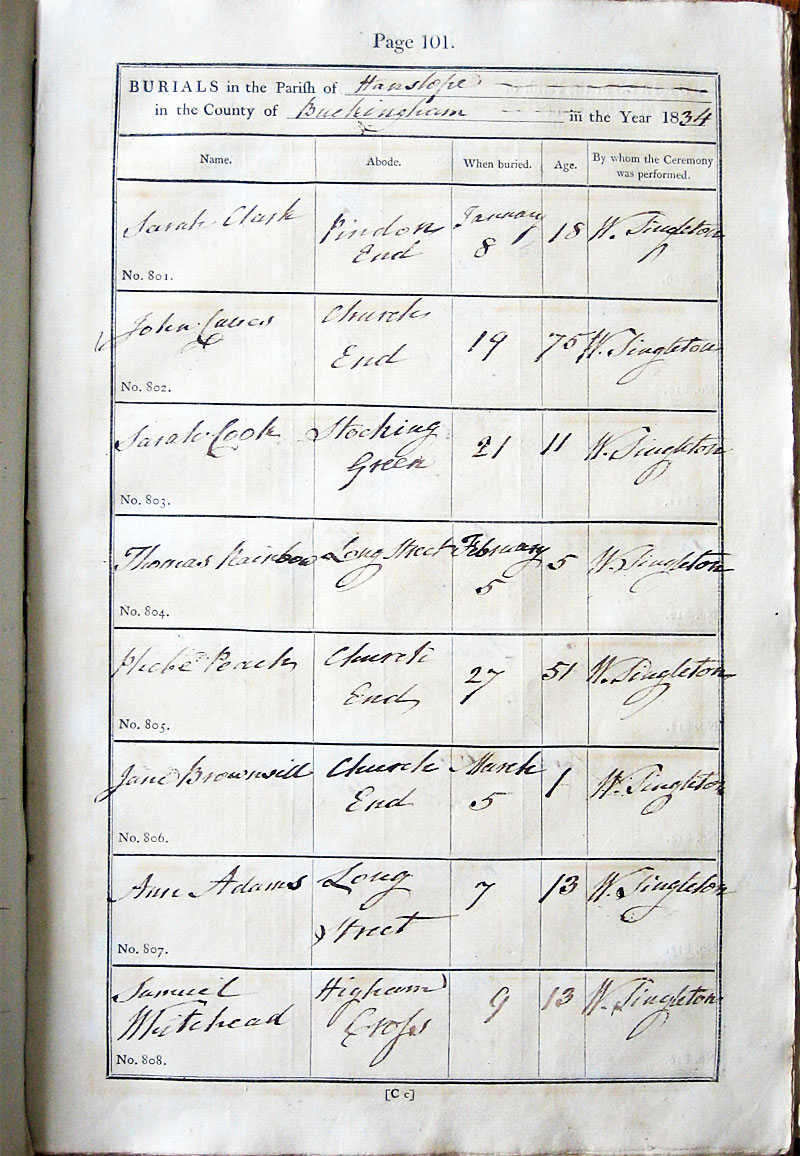 Page 101.
BURIALS in the Parish of Hanslope
in the County of Buckingham in the Year 1834
Name. Abode. When buried. Age. By whom the Ceremony was performed.
Sarah Clark Pindon End January 8 18 W. Singleton
No. 801.
John Church End 19 75 W. Singleton
No. 802.
Sarah Cook Stocking Green 21 11 W. Singleton
No. 803.
Thomas Rainbow Long Street February 5 5 W. Singleton
No. 804.
Phebe Peach Church End 27 51 W. Singleton
No. 805.
Jane Brownsill Church End March 5 1 W. Singleton
No. 806.
Ann Adams Long Street 7 13 W. Singleton
No. 807.
Samuel Whitehead Higham Cross 9 13 W. Singleton
No. 808.
[C c]